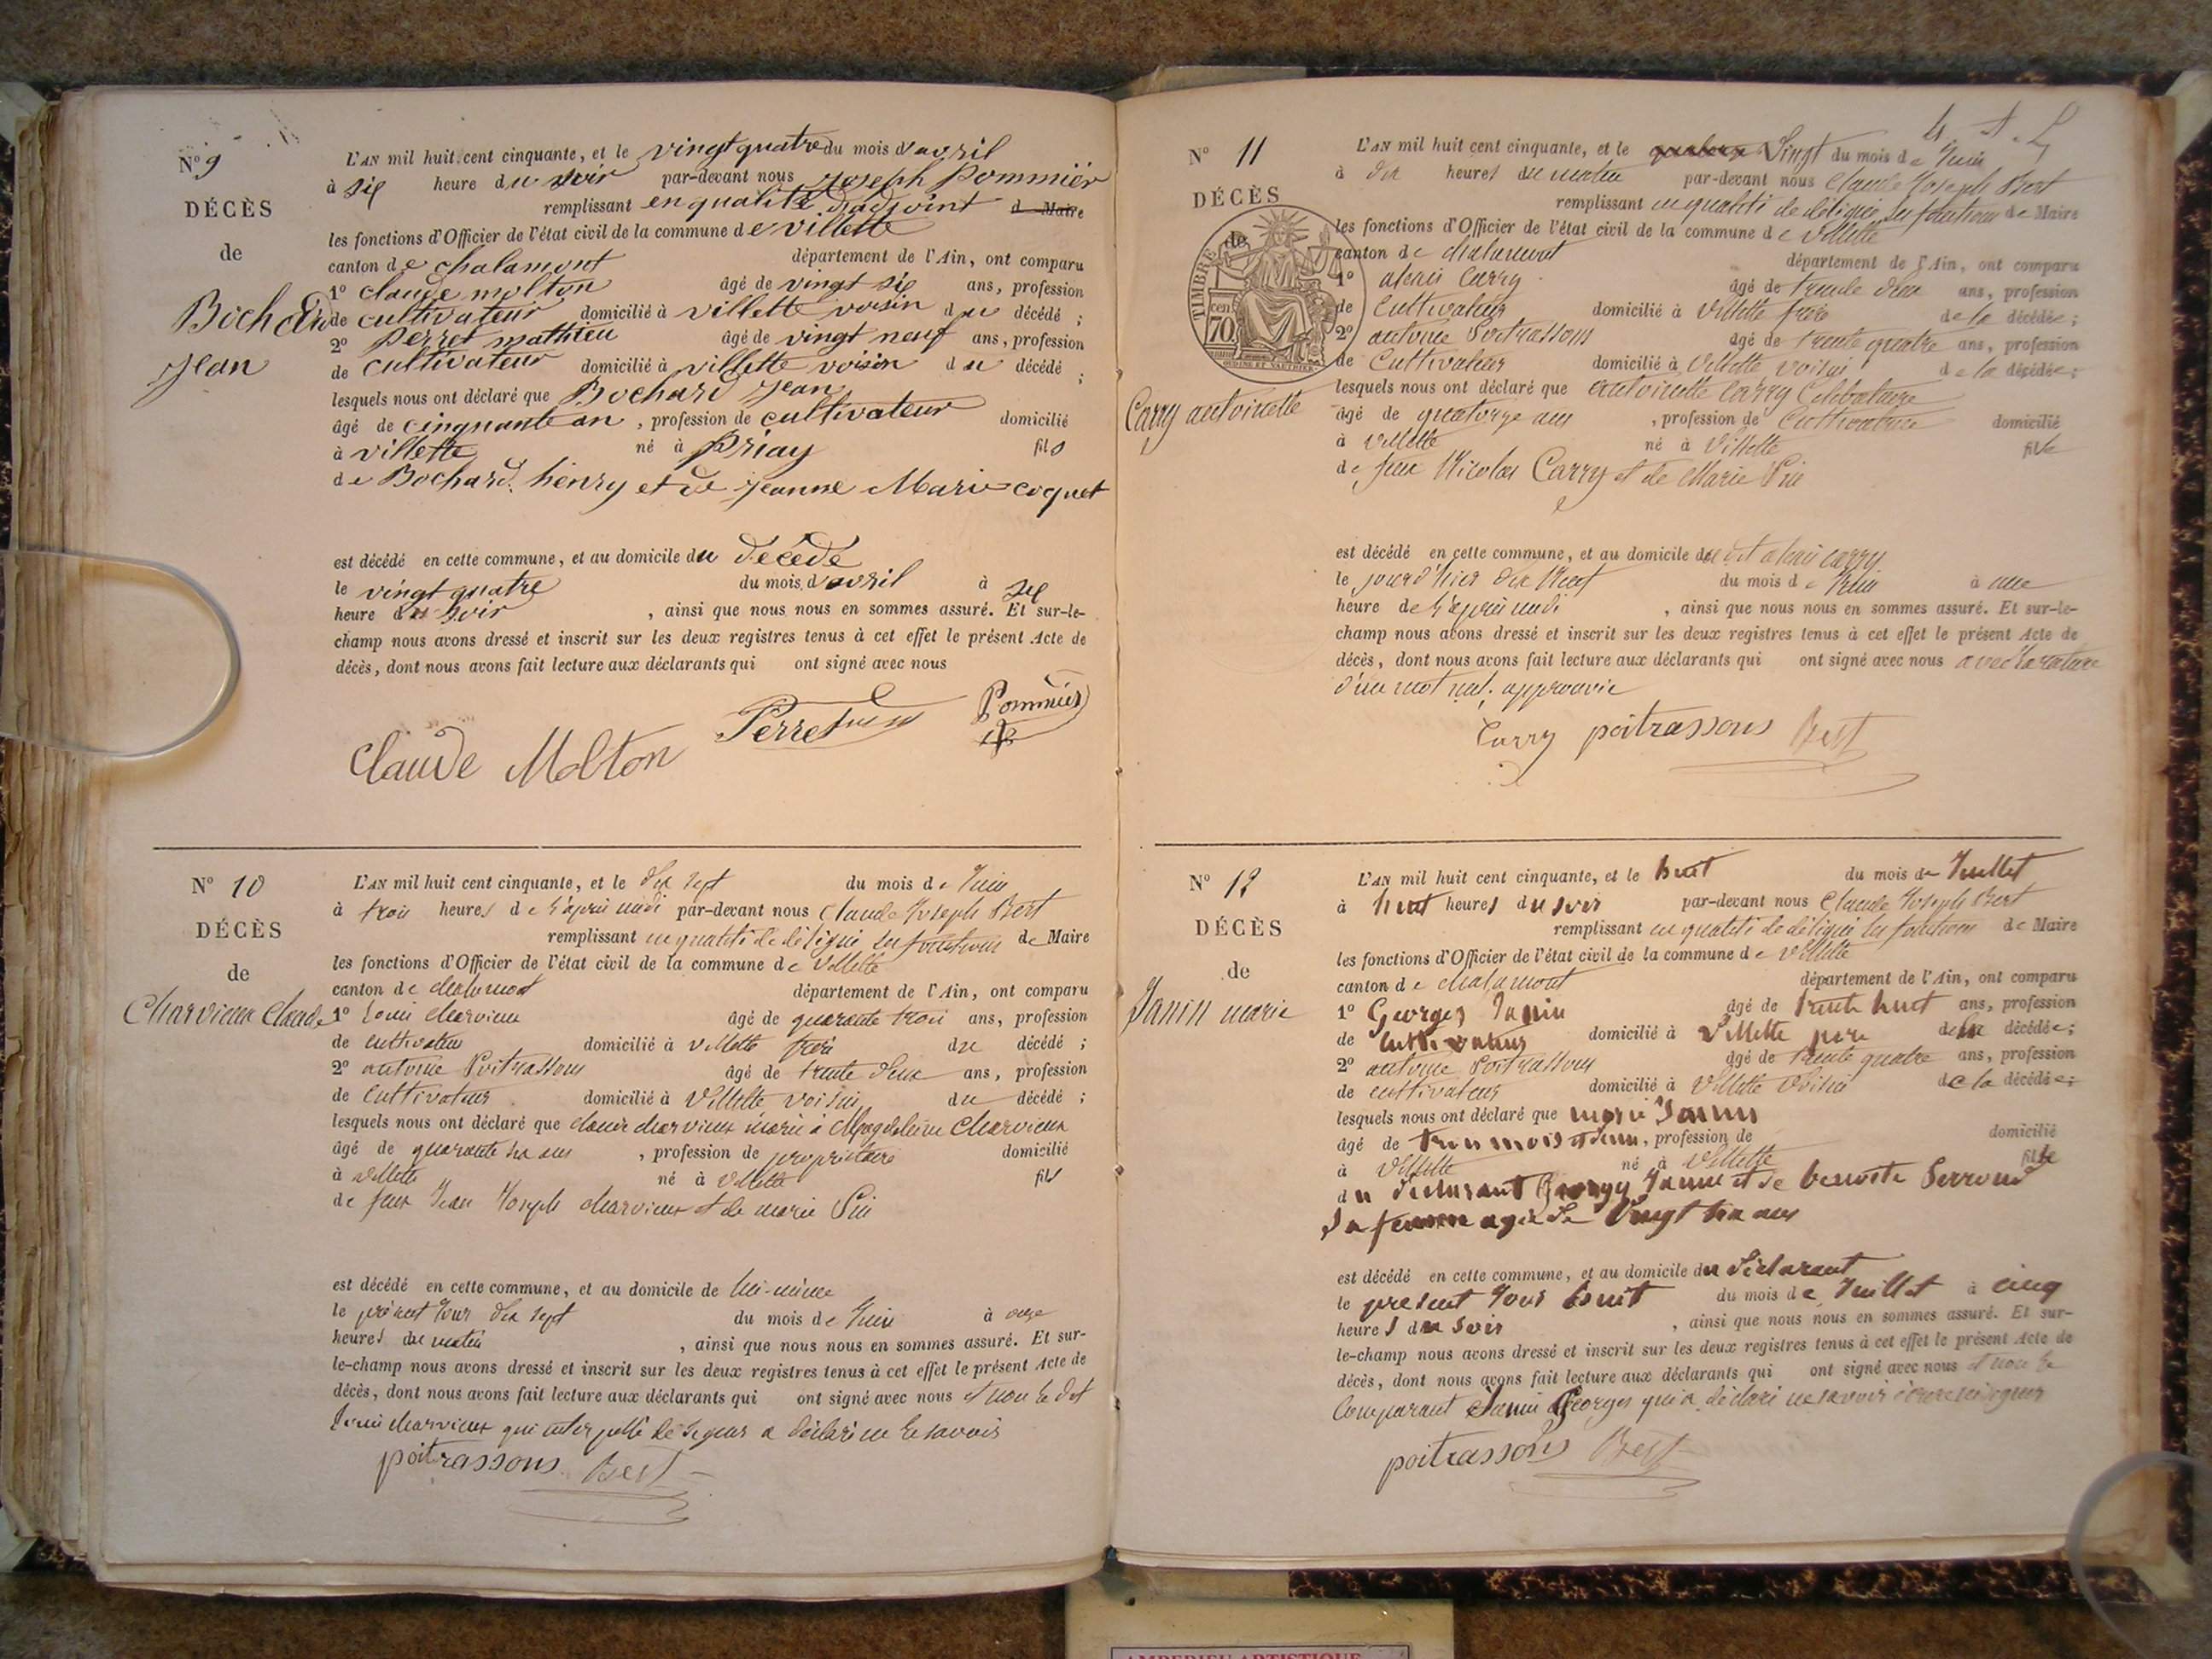 N° 9
DÉCÈS
de
Bochard
Jean
L'AN mil huit cent cinquante, et le vingt quatre du mois d'avril
à six heure du soir par-devant nous joseph Pommier
remplissant en qualité d'adjoint d Maire
les fonctions d'Officier de l'état civil de la commune de villette
canton de chalamont département de l'Ain, ont comparu
1° claude molton âgé de vingt six ans, profession
de cultivateur domicilié à villette voisin du décédé ;
2° Perret mathieu âgé de vingt neuf ans, profession
de cultivateur domicilié à villette voisin du décédé ;
lesquels nous ont déclaré que Bochard Jean
âgé de cinquante an, profession de cultivateur domicilié
à villette né à Priay fils
de Bochard henry et de jeanne Marie coquet
est décédé en cette commune, et au domicile du décédé
le vingt quatre du mois d'avril à six
heure du soir, ainsi que nous nous en sommes assuré. Et sur-le-
champ nous avons dressé et inscrit sur les deux registres tenus à cet effet le présent Acte de
décès, dont nous avons fait lecture aux déclarants qui ont signé avec nous
Claude Molton Perret Pommier
N° 10
DÉCÈS
de
Charvieux Claude
L'AN mil huit cent cinquante, et le dix sept du mois de Juin
à trois heures de l'après midi par-devant nous Claude Joseph Bert
remplissant en qualité de délégué les fonctions de Maire
les fonctions d'Officier de l'état civil de la commune de Villette
canton de chalamont département de l'Ain, ont comparu
1° Louis charvieux âgé de quarante trois ans, profession
de cultivateur domicilié à villette frère du décédé ;
2° antoine Poitrassons âgé de trente deux ans, profession
de Cultivateur domicilié à Villette voisin du décédé ;
lesquels nous ont déclaré que claude charvieux marié à Magdeleine Charvieux
âgé de quarante six ans, profession de propriétaire domicilié
à villette né à villette fils
de feux Jean Joseph charvieux et de marie Pin
est décédé en cette commune, et au domicile de lui-même
le présent Jour dix sept du mois de Juin à onze
heures du matin, ainsi que nous nous en sommes assuré. Et sur-
le-champ nous avons dressé et inscrit sur les deux registres tenus à cet effet le présent Acte de
décès, dont nous avons fait lecture aux déclarants qui ont signé avec nous et non le dit
Louis charvieux qui interpellé de signer a déclaré ne le savoir
poitrassons Bert
N° 11
DÉCÈS
de
TIMBRE
70 cen
Carry antoinette
L'AN mil huit cent cinquante, et le quatorze Vingt du mois de Juin
à dix heures du matin par-devant nous Claude Joseph Bert
remplissant en qualité de délégué les fonctions de Maire
les fonctions d'Officier de l'état civil de la commune de Villette
canton de chalamont département de l'Ain, ont comparu
1° alexis Carry âgé de trente deux ans, profession
de Cultivateur domicilié à Villette frère de la décédée ;
2° antoine Poitrassons âgé de trente quatre ans, profession
de Cultivateur domicilié à Villette voisin de la décédée ;
lesquels nous ont déclaré que antoinette Carry Célibataire
âgé de quatorze ans, profession de Cultivatrice domicilié
à Villette né à Villette fille
de feu Nicolas Carry et de Marie Pin
est décédé en cette commune, et au domicile du dit alexis carry
le jour d'hier dix Neuf du mois de Juin à une
heure de l'après midi, ainsi que nous nous en sommes assuré. Et sur-le-
champ nous avons dressé et inscrit sur les deux registres tenus à cet effet le présent Acte de
décès, dont nous avons fait lecture aux déclarants qui ont signé avec nous avec la rature
d'un mot nul, approuvée
Carry poitrassons Bert
N° 12
DÉCÈS
de
Janin marie
L'AN mil huit cent cinquante, et le huit du mois de Juillet
à huit heures du soir par-devant nous Claude Joseph Bert
remplissant en qualité de délégué les fonctions de Maire
les fonctions d'Officier de l'état civil de la commune de Villette
canton de chalamont département de l'Ain, ont comparu
1° Georges Janin âgé de trente huit ans, profession
de Cultivateur domicilié à Villette père de la décédée ;
2° antoine Poitrassons âgé de trente quatre ans, profession
de cultivateur domicilié à Villette voisin de la décédée ;
lesquels nous ont déclaré que marie Janin
âgé de trois mois et demi, profession de domicilié
à Villette né à Villette fille
du déclarant Georges Janin et de benoite Perroud
sa femme agée de Vingt six ans
est décédé en cette commune, et au domicile du déclarant
le présent Jour huit du mois de Juillet à cinq
heures du soir, ainsi que nous nous en sommes assuré. Et sur-
le-champ nous avons dressé et inscrit sur les deux registres tenus à cet effet le présent Acte de
décès, dont nous avons fait lecture aux déclarants qui ont signé avec nous et non le
Comparant Janin Georges qui a déclaré ne savoir écrire ni signer
poitrassons Bert
AMBERIEU ARTISTIQUE